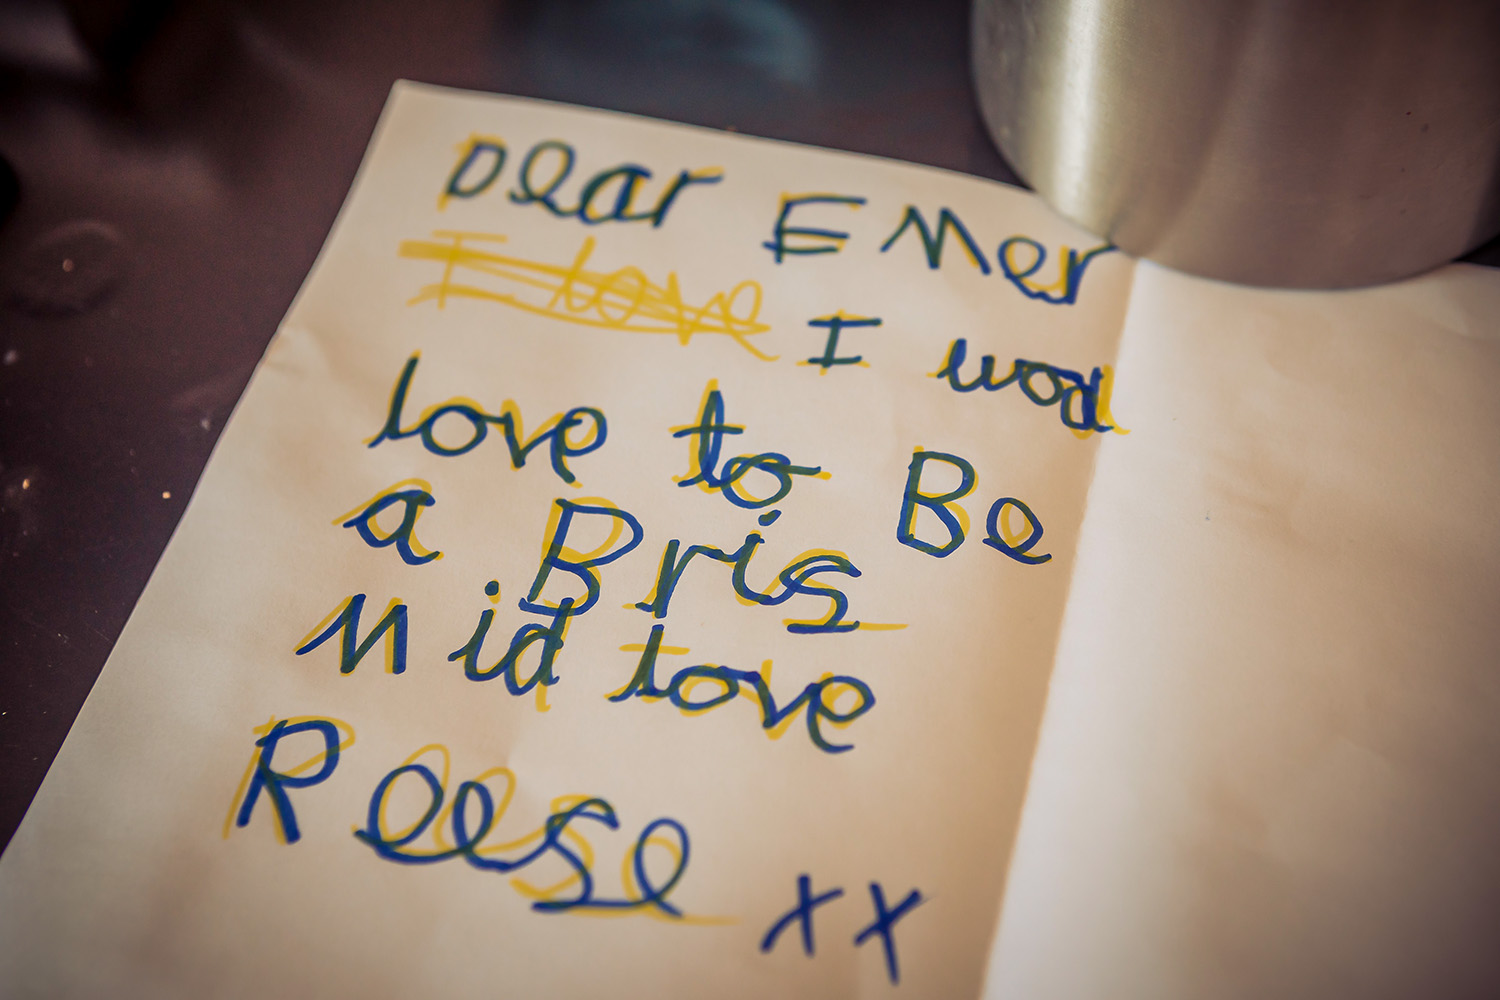 Dear EMer
I love I wod
love to Be
a Bris
Mid love
Reese xx